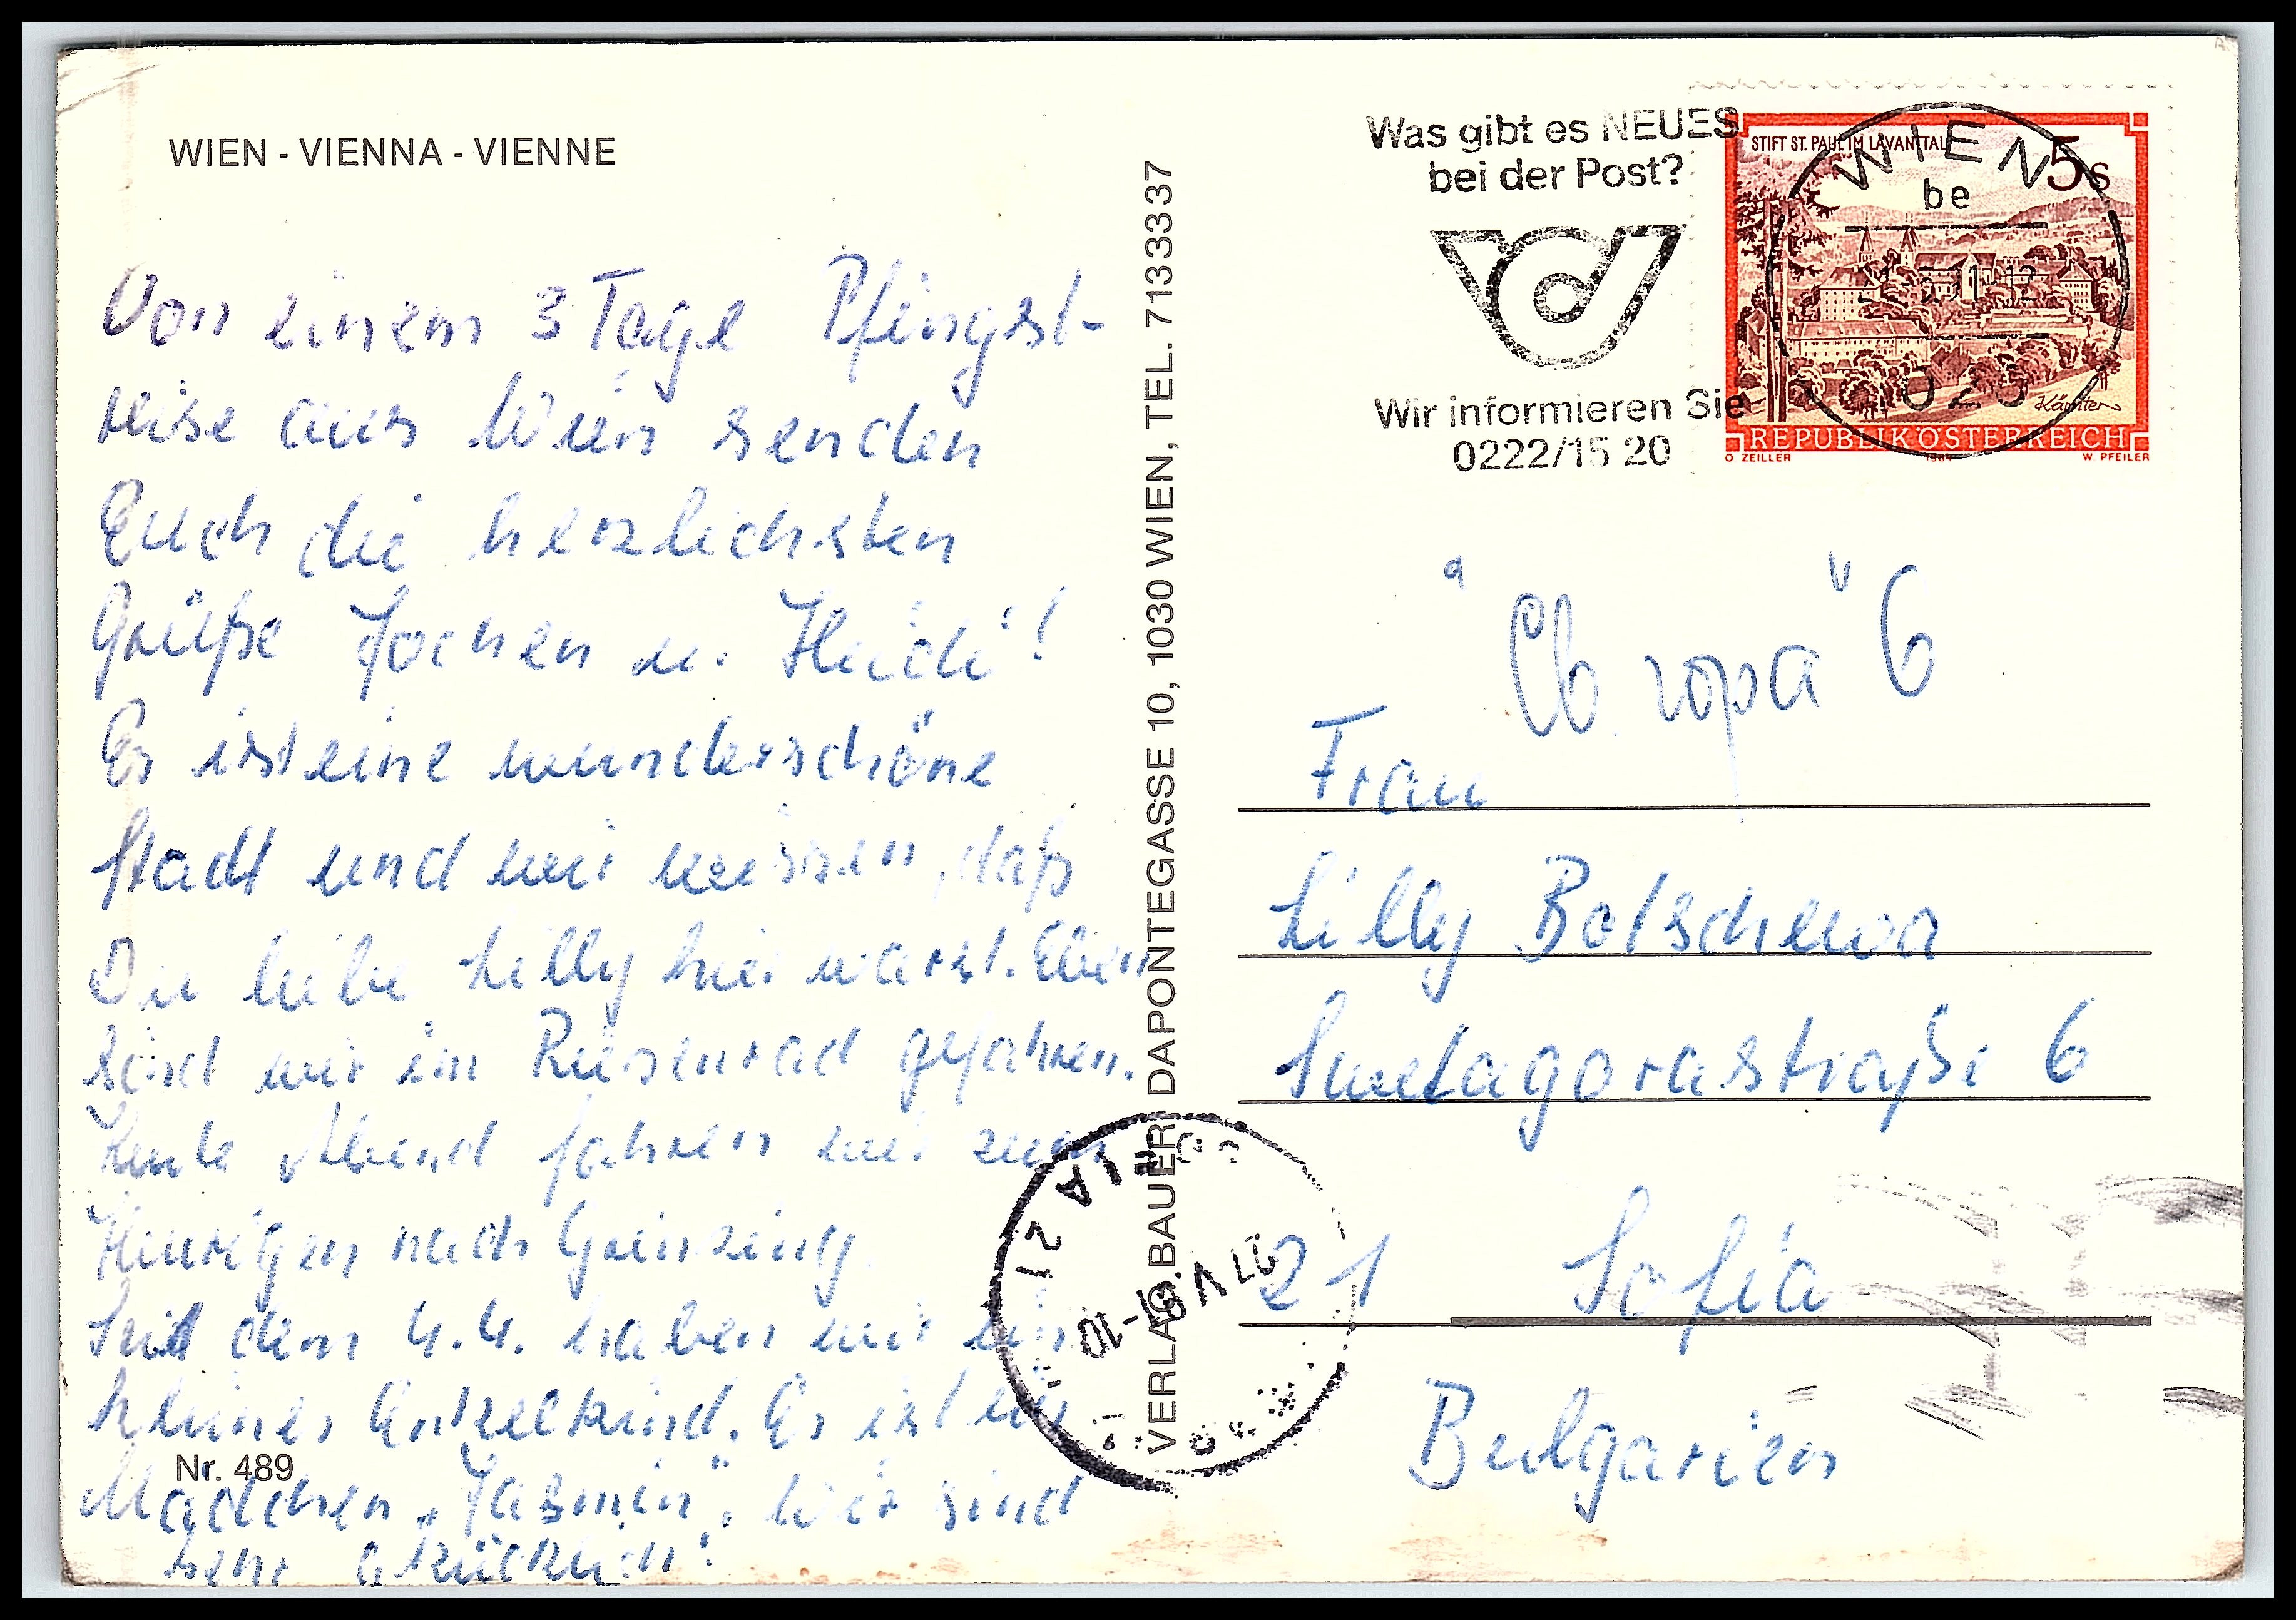 WIEN - VIENNA - VIENNE
Von einem 3 Tage Pfingst-
reise aus Wien senden
Euch die herzlichsten
Grüße Jochen u. Heidi!
Es ist eine wunderschöne
Stadt und wir wissen, daß
Du liebe Lilly hier warst. Eben
sind wir im Riesenrad gefahren.
Heute Abend fahren wir zum
Heurigen nach Grinzing.
Seit dem 4.4. haben wir ein
kleines Enkelkind. Es ist ein
Nr. 489
Mädchen „Jasmin". Wir sind
sehr glücklich!
VERLAG BAUER, DAPONTEGASSE 10, 1030 WIEN, TEL. 7133337
Was gibt es NEUES
bei der Post?
Wir informieren Sie
0222/15 20
STIFT ST. PAUL IM LAVANTTAL
5 S
WIEN
be
Kärnten
REPUBLIK ÖSTERREICH
O ZEILLER 1984 W PFEILER
6
Frau
Lilly Botschewa
Swetagorastraße 6
21 Sofia
Bulgarien
27 V 91-10